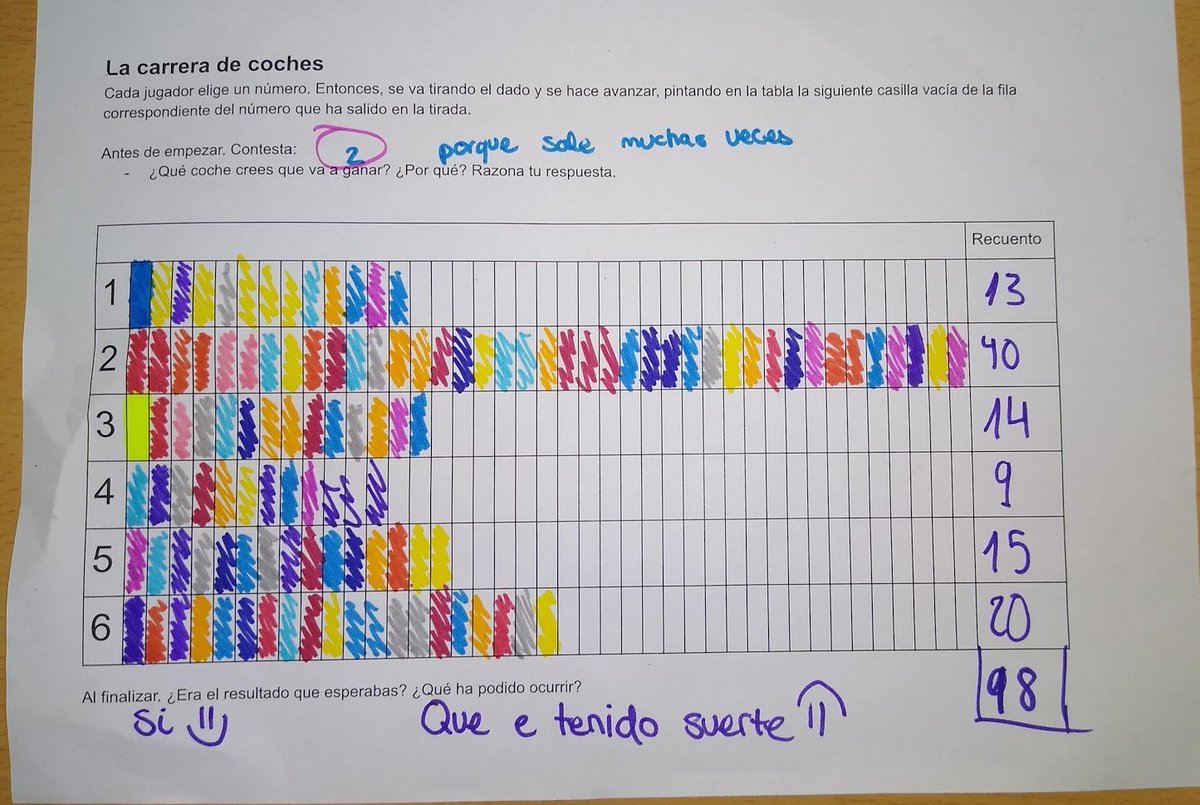 La carrera de coches
Cada jugador elige un número. Entonces, se va tirando el dado y se hace avanzar, pintando en la tabla la siguiente casilla vacía de la fila
correspondiente del número que ha salido en la tirada.
Antes de empezar. Contesta: 2 porque sale muchas veces
- ¿Qué coche crees que va a ganar? ¿Por qué? Razona tu respuesta.
Recuento
1 13
2 40
3 14
4 9
5 15
6 20
98
Al finalizar. ¿Era el resultado que esperabas? ¿Qué ha podido ocurrir?
Si Que e tenido suerte